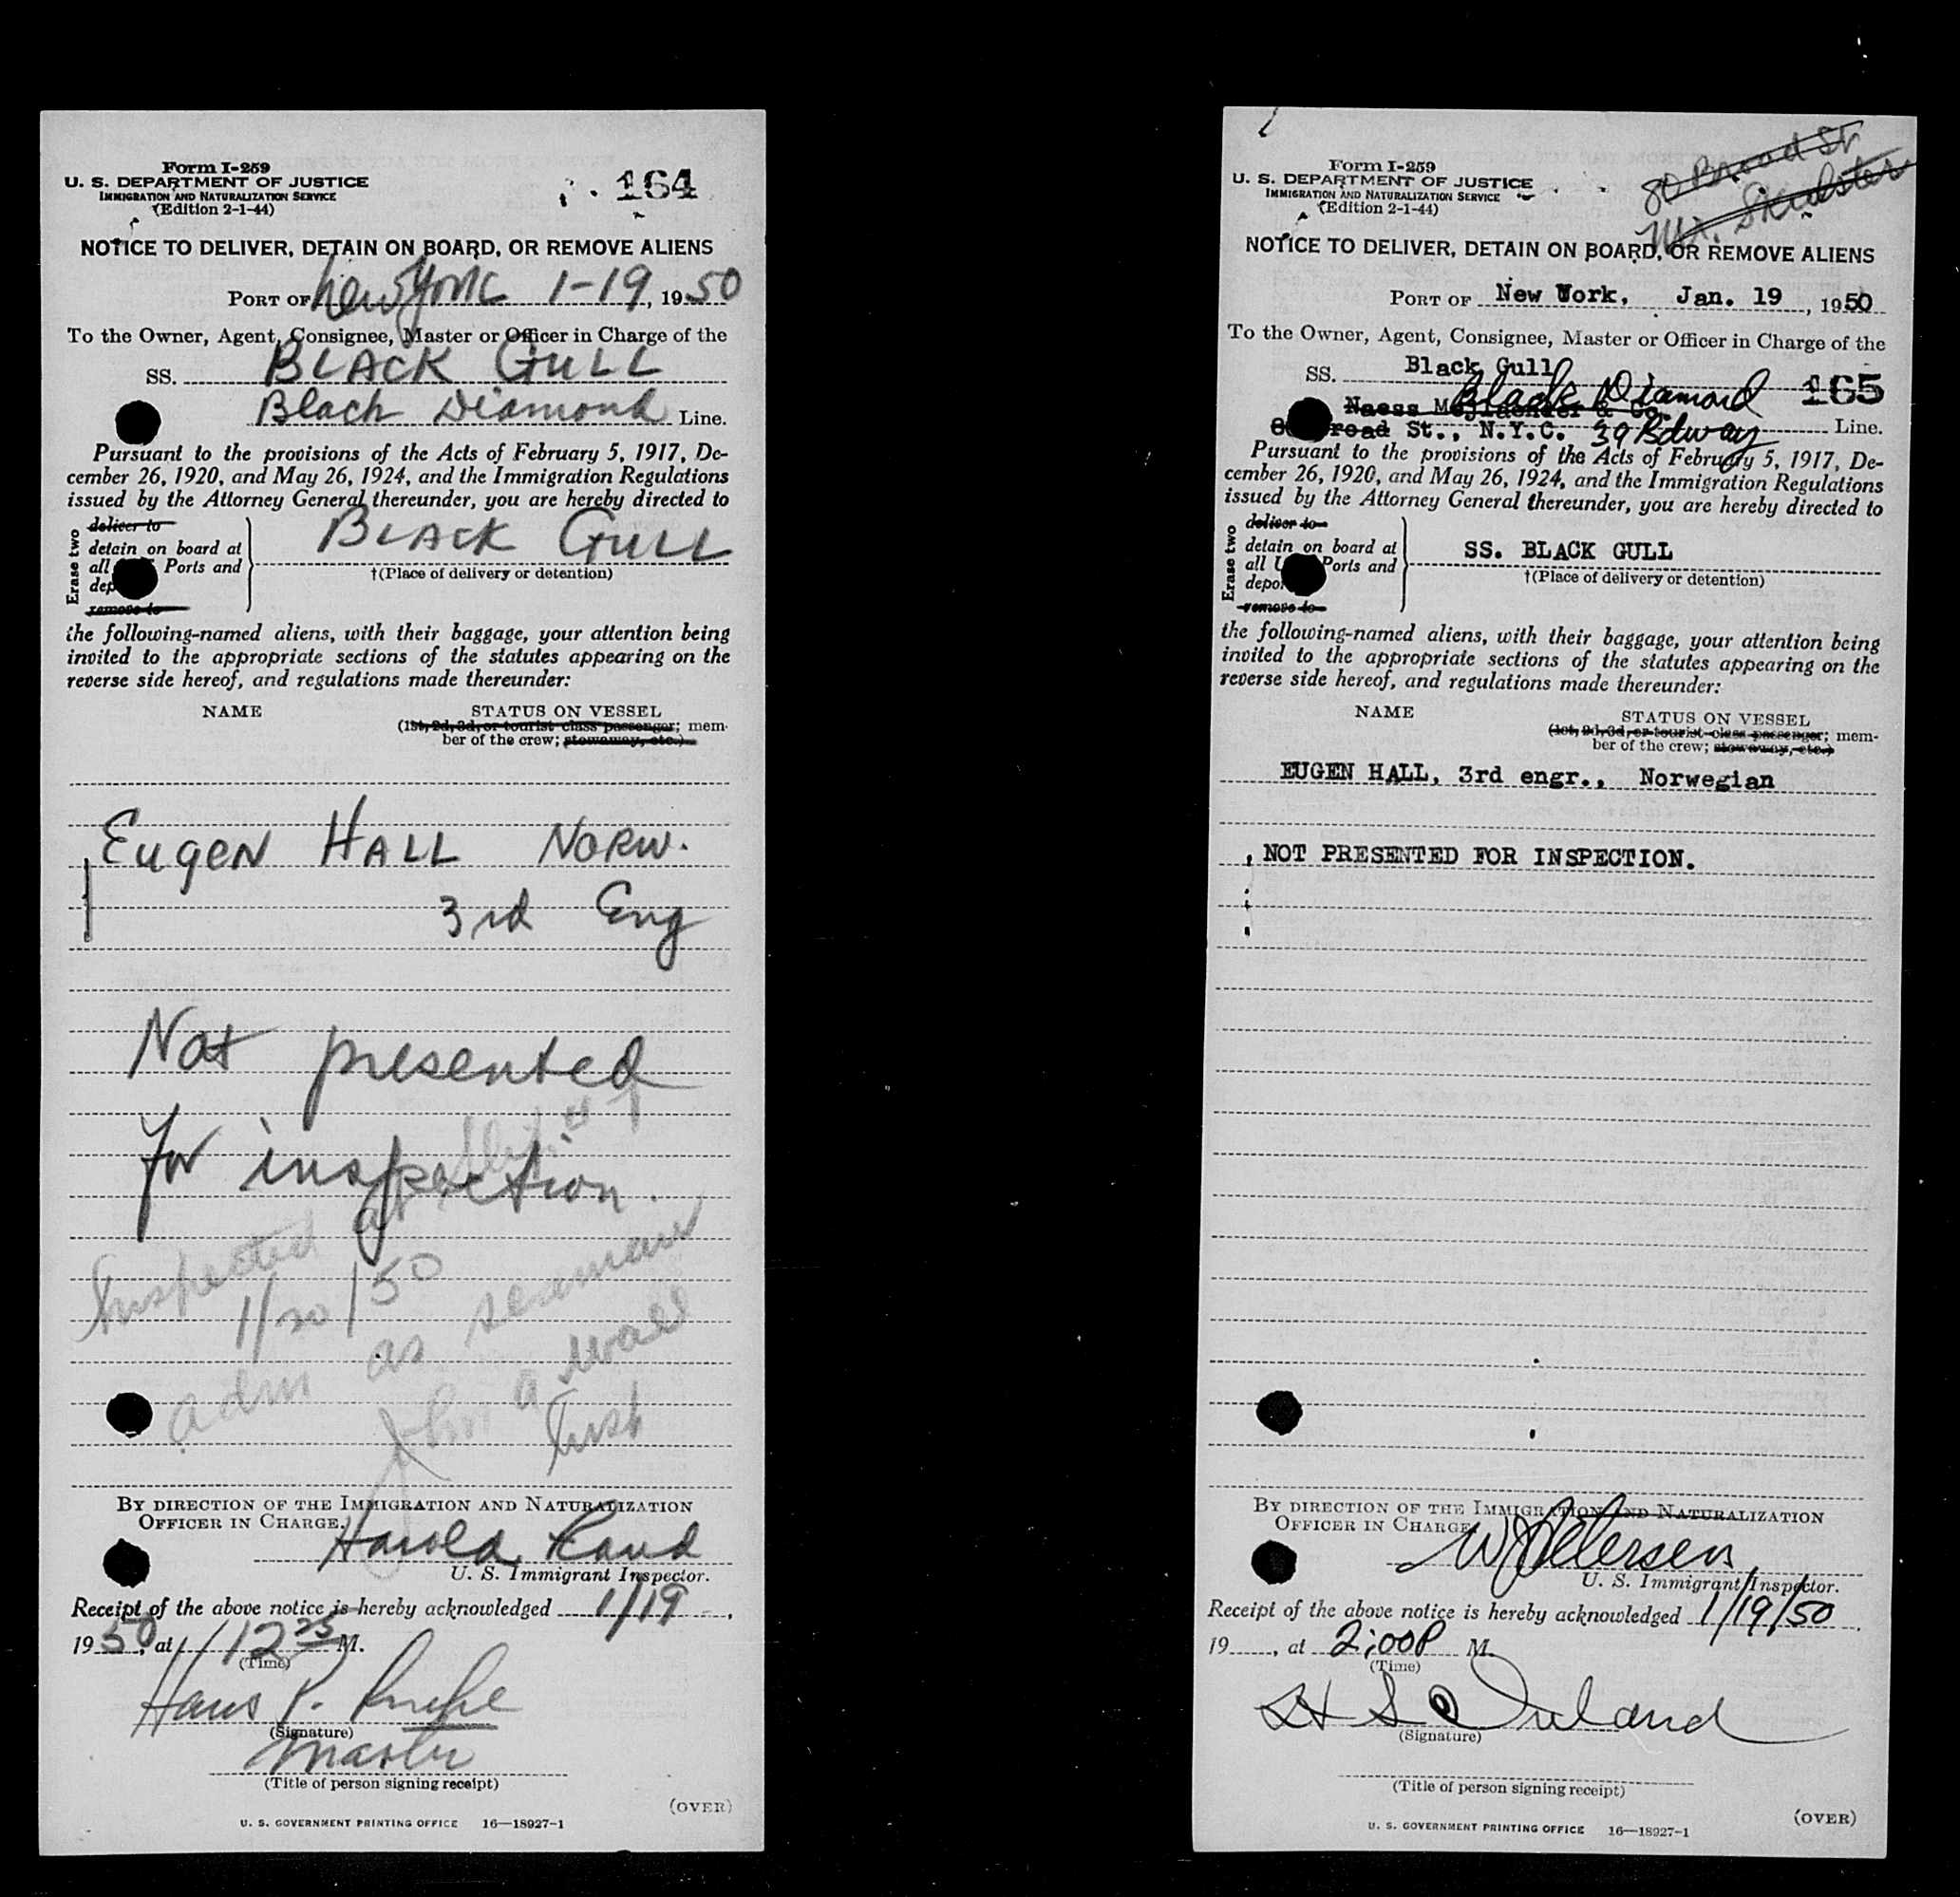 Form I-259
U. S. DEPARTMENT OF JUSTICE
IMMIGRATION AND NATURALIZATION SERVICE
(Edition 2-1-44)
164
NOTICE TO DELIVER, DETAIN ON BOARD, OR REMOVE ALIENS
PORT OF New York 1-19, 1950
To the Owner, Agent, Consignee, Master or Officer in Charge of the
SS. BLACK GULL
Black Diamond Line.
Pursuant to the provisions of the Acts of February 5, 1917, De-
cember 26, 1920, and May 26, 1924, and the Immigration Regulations
issued by the Attorney General thereunder, you are hereby directed to
Erase two
deliver to
detain on board at
all Ports and
dep
remove to
BLACK GULL
†(Place of delivery or detention)
the following-named aliens, with their baggage, your attention being
invited to the appropriate sections of the statutes appearing on the
reverse side hereof, and regulations made thereunder:
NAME
STATUS ON VESSEL
(1st, 2d, 3d, or tourist class passenger; mem-
ber of the crew; stowaway, etc.)
Eugen HALL NORW.
3rd Eng
Not presented
for inspection.
Inspected at
1/20/50
adm as seaman
BY DIRECTION OF THE IMMIGRATION AND NATURALIZATION
OFFICER IN CHARGE.
Harold Rand
U. S. Immigrant Inspector.
Receipt of the above notice is hereby acknowledged 1/19,
1950, at 12 25 M.
(Time)
Hans P.
(Signature)
Master
(Title of person signing receipt)
(OVER)
U. S. GOVERNMENT PRINTING OFFICE 16—18927-1
Form I-259
U. S. DEPARTMENT OF JUSTICE
IMMIGRATION AND NATURALIZATION SERVICE
(Edition 2-1-44)
80 Broad St
Mr.
NOTICE TO DELIVER, DETAIN ON BOARD, OR REMOVE ALIENS
PORT OF New York, Jan. 19, 1950
To the Owner, Agent, Consignee, Master or Officer in Charge of the
SS. Black Gull
Black Diamond 165
Naess Mejlaender & Co.
road St., N.Y.C. 39 Bdway Line.
Pursuant to the provisions of the Acts of February 5, 1917, De-
cember 26, 1920, and May 26, 1924, and the Immigration Regulations
issued by the Attorney General thereunder, you are hereby directed to
Erase two
deliver to
detain on board at
all U Ports and
depor
remove to
SS. BLACK GULL
†(Place of delivery or detention)
the following-named aliens, with their baggage, your attention being
invited to the appropriate sections of the statutes appearing on the
reverse side hereof, and regulations made thereunder:
NAME
STATUS ON VESSEL
(1st, 2d, 3d, or tourist-class passenger; mem-
ber of the crew; stowaway, etc.)
EUGEN HALL, 3rd engr., Norwegian
NOT PRESENTED FOR INSPECTION.
BY DIRECTION OF THE IMMIGRATION AND NATURALIZATION
OFFICER IN CHARGE.
W Petersen
U. S. Immigrant Inspector.
Receipt of the above notice is hereby acknowledged 1/19/50,
19, at 2:00P M.
(Time)
(Signature)
(Title of person signing receipt)
(OVER)
U. S. GOVERNMENT PRINTING OFFICE 16—18927-1